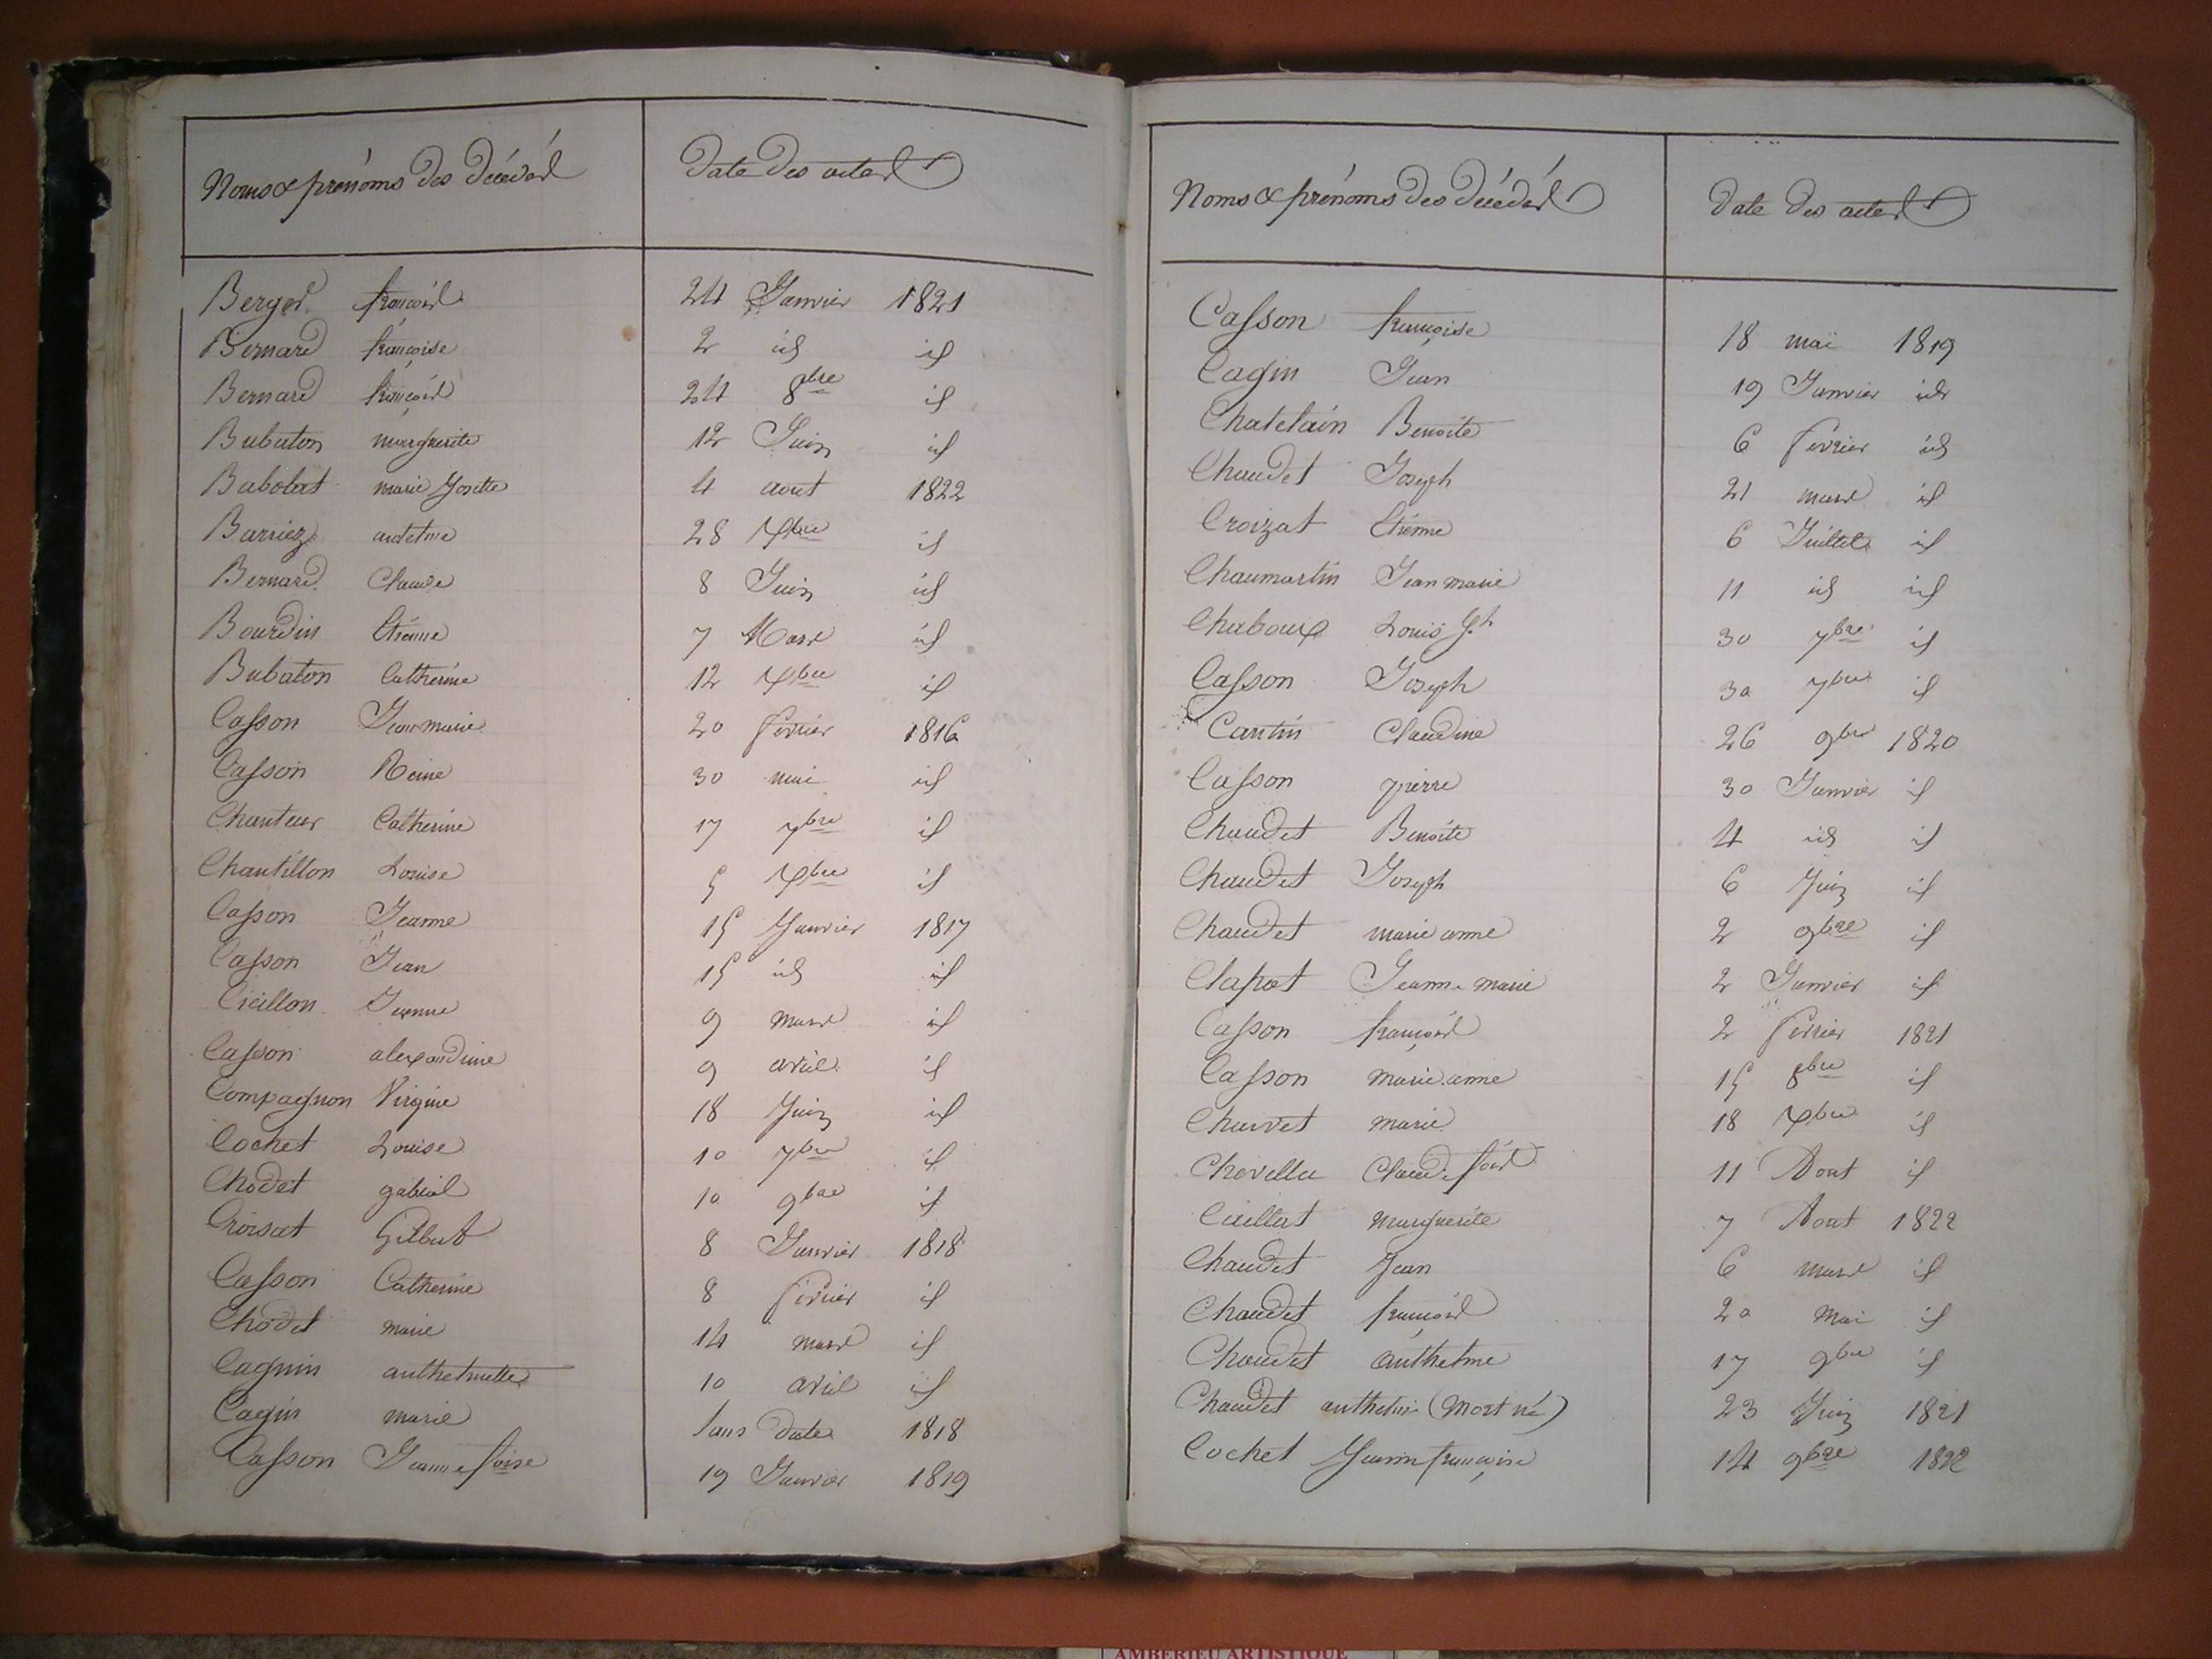 Noms & prénoms des décédés Date des actes
Berger françois 24 Janvier 1821
Bernard françoise 2 id id
Bernard françois 24 8bre id
Bubaton marguerite 12 Juin id
Babolat marie Josette 4 aout 1822
Barriez antelme 28 Xbre id
Bernard Claude 8 Juin id
Bourdin Etienne 7 Mars id
Bubaton Catherine 12 Xbre id
Casson Jean marie 20 fevrier 1816
Casson Reine 30 mai id
Chanteur Catherine 17 7bre id
Chantillon Louise 5 Xbre id
Casson Jeanne 15 Janvier 1817
Casson Jean 15 id id
Cicillon Jeanne 9 mars id
Casson alexandrine 9 avril id
Compagnon Virginie 18 Juin id
Cochet Louise 10 7bre id
Chodet gabriel 10 9bre id
Croisat Gilbert 8 Janvier 1818
Casson Catherine 8 fevrier id
Chodet marie 14 mars id
Cagnin anthelmette 10 avril id
Cagin marie sans date 1818
Casson Jeanne foise 19 Janvier 1819
Noms & prénoms des décédés Date des actes
Casson françoise 18 mai 1819
Cagin Jean 19 Janvier id
Chatelain Benoite 6 fevrier id
Chaudet Joseph 21 mars id
Croizat Etienne 6 Juillet id
Chaumartin Jean marie 11 id id
Chaboux Louis Jh 30 7bre id
Casson Joseph 30 7bre id
Cantin Claudine 26 9bre 1820
Casson pierre 30 Janvier id
Chaudet Benoite 4 id id
Chaudet Joseph 6 Juin id
Chaudet marie anne 2 9bre id
Clapot Jeanne marie 2 Janvier id
Casson françois 2 fevrier 1821
Casson marie anne 15 8bre id
Charvet marie 18 Xbre id
Claude fois 11 Aout id
marguerite 7 Aout 1822
Chaudet Jean 6 mars id
Chaudet françois 20 Mai id
Chaudet anthelme 17 9bre id
Chaudet anthelme (Mort né) 23 Juin 1821
Cochet Jeanne françoise 14 9bre 1822
AMBERIEU ARTISTIQUE